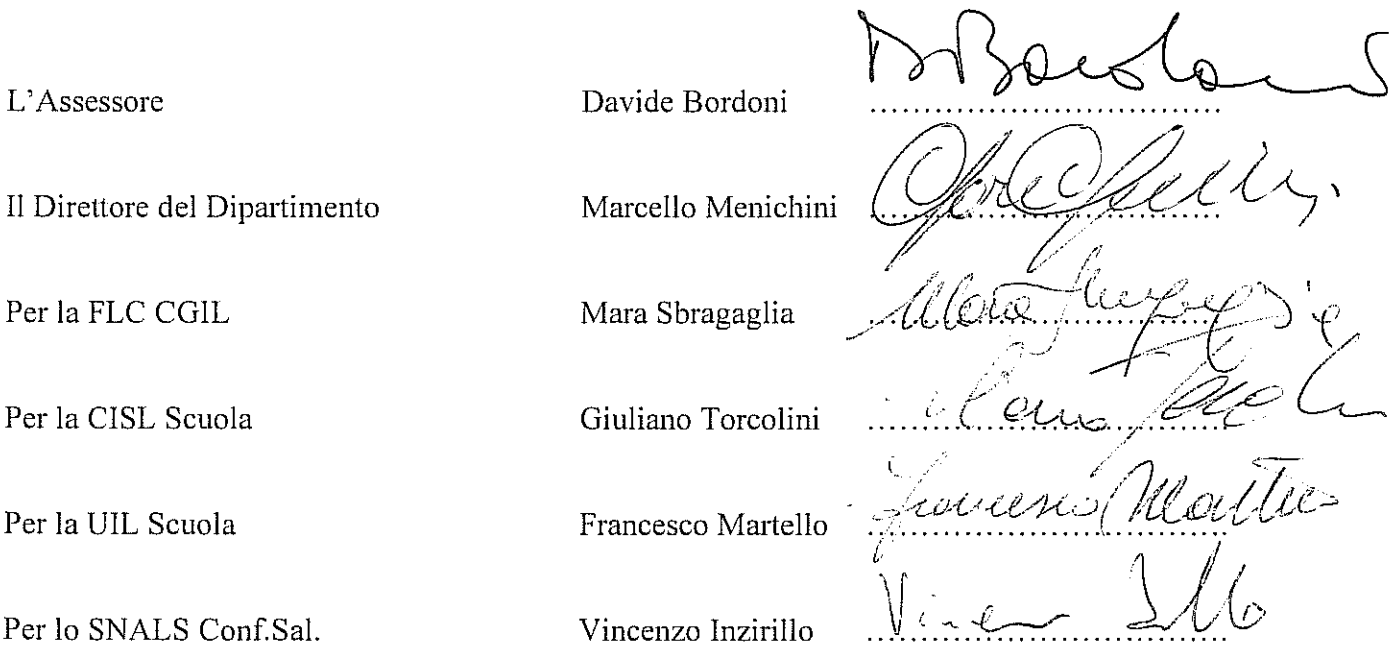 L'Assessore Davide Bordoni
Il Direttore del Dipartimento Marcello Menichini
Per la FLC CGIL Mara Sbragaglia
Per la CISL Scuola Giuliano Torcolini
Per la UIL Scuola Francesco Martello
Per lo SNALS Conf.Sal. Vincenzo Inzirillo